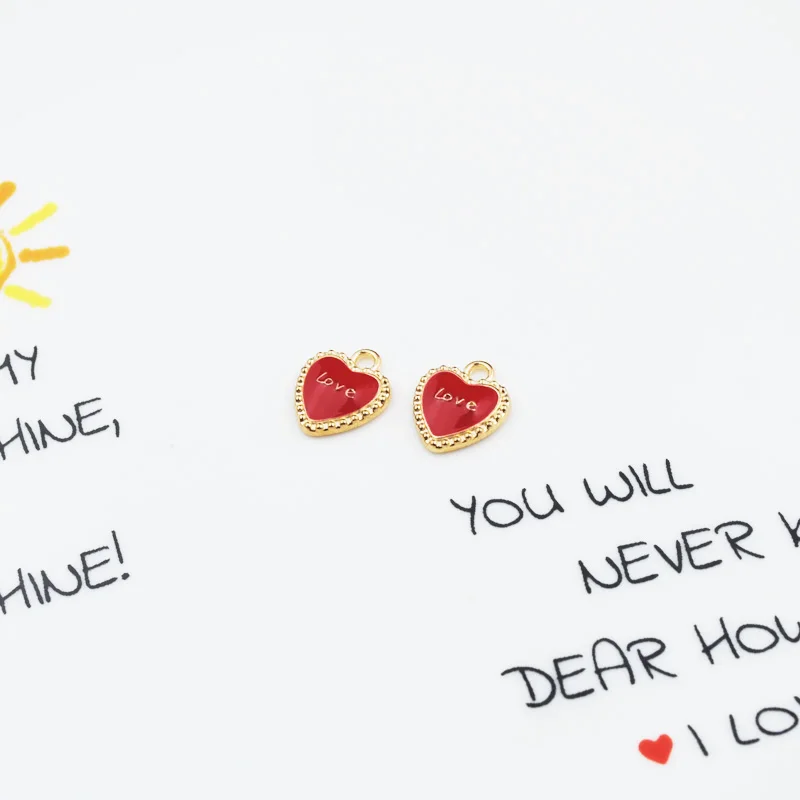 MY
HINE,
HINE!
Love
Love
YOU WILL
NEVER K
DEAR HOW
I LOV